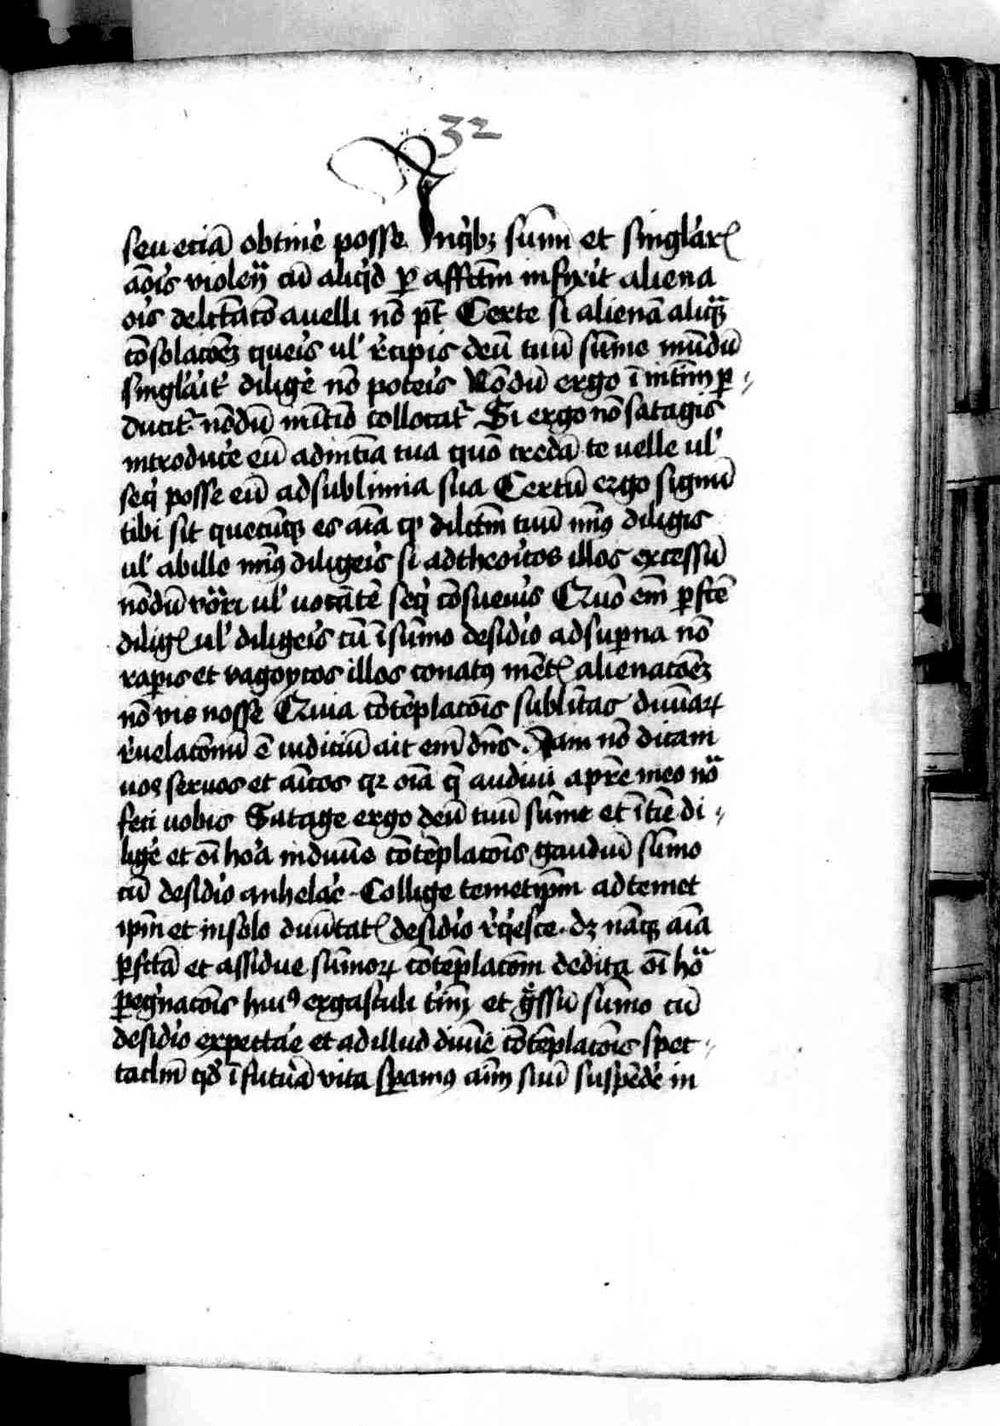 32
seu eciā obtine᷑ posse Inq̇bꝫ sūmi et singlar᷑ꝭ
aōis violēn̄ cū aliq̇d ꝑ affc̄m infixit aliena
ois delc̄tatō auelli nō pt̄ Certe si alienā aliq̄ꝫ
cōsolacōeꝫ queris ul᷑ r᷑cipis deū tuū sūme nūdū
singlarit᷑ dilige᷑ nō poteris Nōdū ergo ī intim̄ ꝑ
ducit᷑ nōdū ī medio collocat᷑ Si ergo nō satagis
introduce᷑ eū ad intīa tua quō credā te uelle ul᷑
seq̇ posse eū ad sublimia sua Certū ergo signū
tibi sit quecūqꝫ es aīa ꝙ dilc̄m tuū minꝰ diligis
ul᷑ ab illo minꝰ diligeris si ad theoricos illos excessū
nōdū vocari ul᷑ uocātē seq̇ cōsueuis Quō em̄ ꝑfcē
diligꝭ ul᷑ diligeris cū ī sūmo desid᷑io ad suꝑna nō
raperis et anagoycos illos conatꝰ mētꝭ alienacōeꝫ
nō vis nosse Quia cōtēplacōis sublīitas diuinaꝝ
r᷑uelacōnū ē iudiciū ait em̄ dn̄s Jam nō dicam
uos seruos et am̄cos qꝛ oīa q̄ audiui a pr̄e meo nōa
feci uobis Satage ergo deū tuū sūme et ītīe di
lige᷑ et oī hora in diuine cōtēplacōis gaudiū sūmo
cū desid᷑io anhelar᷑e Collige temetip̄m ad temet
ip̄m et in solo diuinitatꝭ desid᷑io r᷑q̇esce dꝫ nāqꝫ aīa
ꝑfc̄tā et assidue sūmoꝝ cōtēplacōni dedita oī hora
peregrinacōis huiꝰ ergastuli t᷑mīm et egressū sūmo cū
desid᷑io expectar᷑e et ad illud diuine cōtēplacōis spec
taclm̄ qd̄ ī futura vita speramꝰ aīm suū suspēde᷑ in